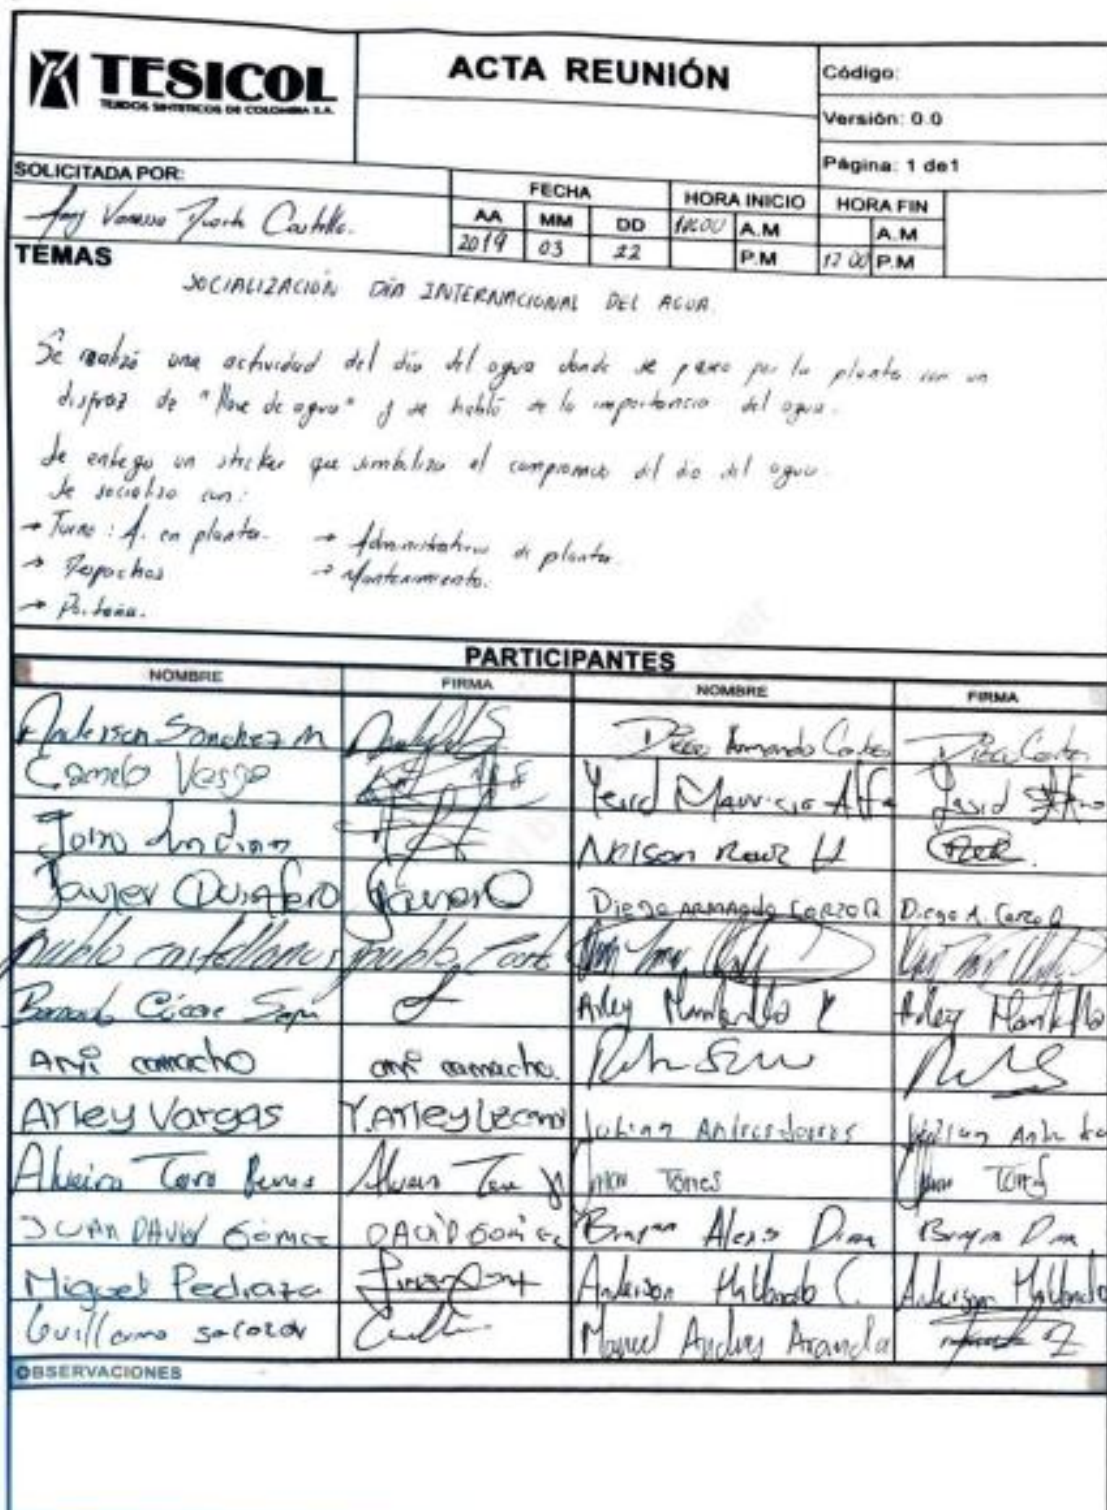 TESICOL
TEJIDOS SINTETICOS DE COLOMBIA S.A.
ACTA REUNIÓN
Código:
Versión: 0.0
Página: 1 de1
SOLICITADA POR:
Vanessa Castillo.
FECHA
HORA INICIO
HORA FIN
AA MM DD
A.M
A.M
2019 03 22
P.M
17 00 P.M
TEMAS
SOCIALIZACIÓN DÍA INTERNACIONAL DEL AGUA.
Se realizó una actividad del día del agua donde se paso por la planta con un
disfraz de "llave de agua" y se habló de la importancia del agua.
Se entrego un sticker que simboliza el compromiso del dia del agua.
Se socializo con:
→ Turno: A. en planta. → Administrativos de planta.
→ Despachos → Mantenimiento.
→ Porteria.
PARTICIPANTES
NOMBRE FIRMA NOMBRE FIRMA
Anderson Sanchez M Diego Armando Cortes Diego Cortes
Camilo Yesid Mauricio Yesid
Nelson H
Javier Quintero Javier Q Diego ARMANDO CORZO Q Diego A. Corzo Q
Pablo castellanos pablo cast
Bernardo Arley Mantilla Arley Mantilla
ANYI camacho anyi camacho.
Arley Vargas Y.Arley Julian
Alveiro Toro Alveiro Toro Torres Torres
JUAN DAVID GÓMEZ DAVID GOMEZ Brayan Alexis Brayan
Miguel Pedraza Anderson Maldonado C. Anderson Maldonado
Guillermo salazar Manuel Andres Aranda
OBSERVACIONES